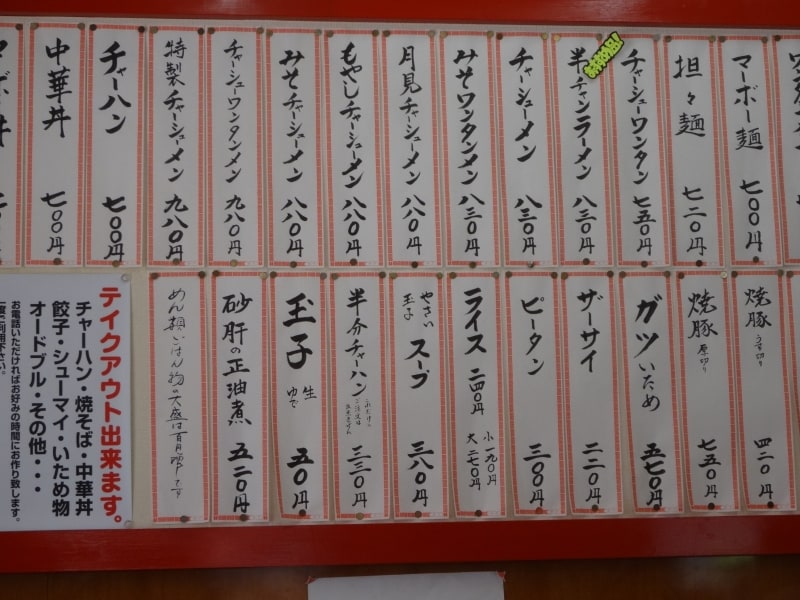 マーボー麺 七〇〇円
担々麺 七二〇円
チャーシューワンタン 七五〇円
半チャンラーメン 八三〇円
チャーシューメン 八三〇円
みそワンタンメン 八三〇円
月見チャーシューメン 八八〇円
もやしチャーシューメン 八八〇円
みそチャーシューメン 八八〇円
チャーシューワンタンメン 九八〇円
特製チャーシューメン 九八〇円
チャーハン 七〇〇円
中華丼 七〇〇円
焼豚 うす切り 四二〇円
焼豚 厚切り 七五〇円
ガツいため 五七〇円
ザーサイ 二二〇円
ピータン 三〇〇円
ライス 二四〇円
小 一九〇円
大 二七〇円
やさい
玉子
スープ 三八〇円
半分チャーハン 三三〇円
玉子 生 ゆで 五〇円
砂肝の正油煮 五二〇円
めん類ごはん物の大盛は百円増しです
テイクアウト出来ます。
チャーハン・焼そば・中華丼
餃子・シューマイ・いため物
オードブル・その他・・・
お電話いただければお好みの時間にお作り致します。